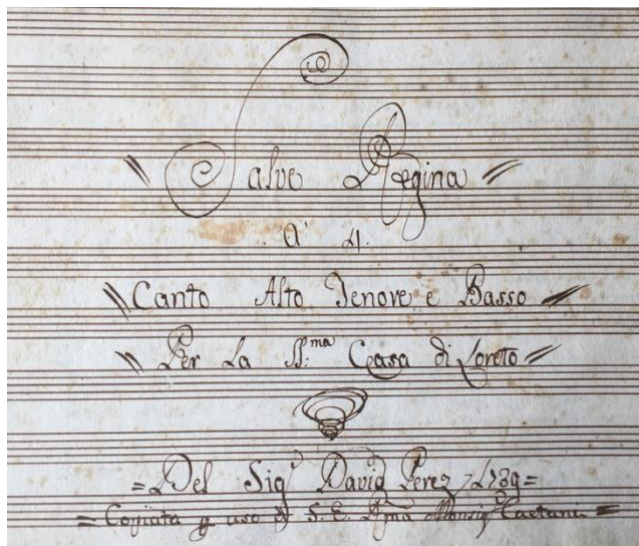 Salve Regina
a 4.
Canto Alto Tenore e Basso
Per La SS:ma Casa di Loreto
=Del Sigr David Perez 1789=
=Copiata uso S. E. Rma Monsigr Caetani=